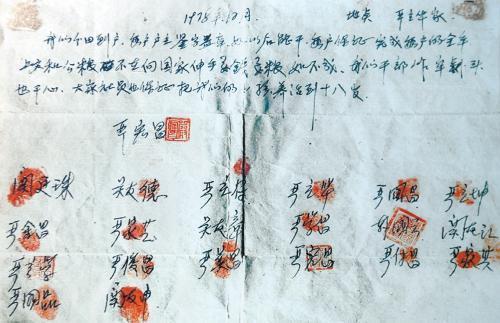 1978年12月. 地点 严立华家
我们分田到户,每户户主签字盖章,如以后能干,每户保证完成每户的全年
上交和公粮,不在向国家伸手要钱要粮,如不成,我们干部作牢刹头
也干心,大家社员也保证把我们的小孩养活到十八岁.
严宏昌
关友德 严立华 严国昌 严立坤
严金昌 严家芝 关友章 严学昌 韩国云 关友江
严立学 严俊昌 严美昌 严宏昌 严付昌 严家其
严国品 关友申